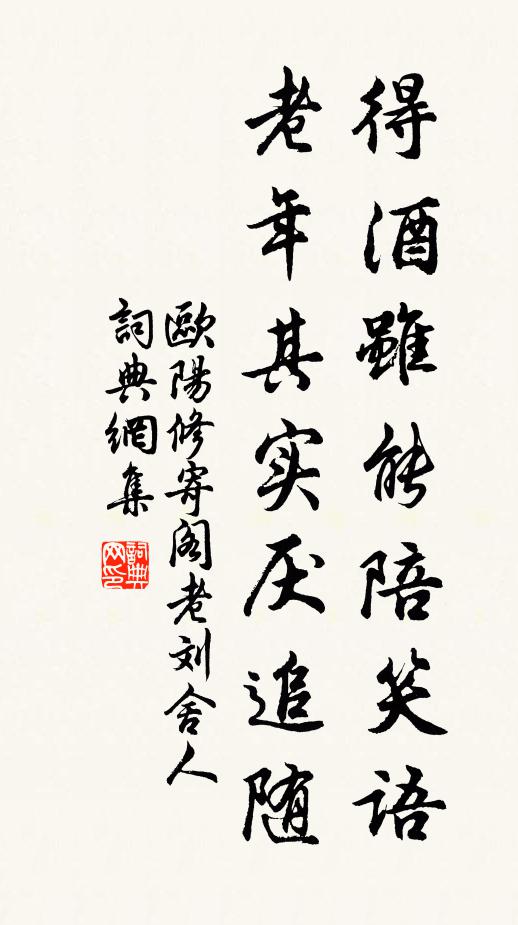 得酒雖能陪笑語
老年其实厌追随
歐陽修寄阁老刘舍人
詞典網集
詞典网印